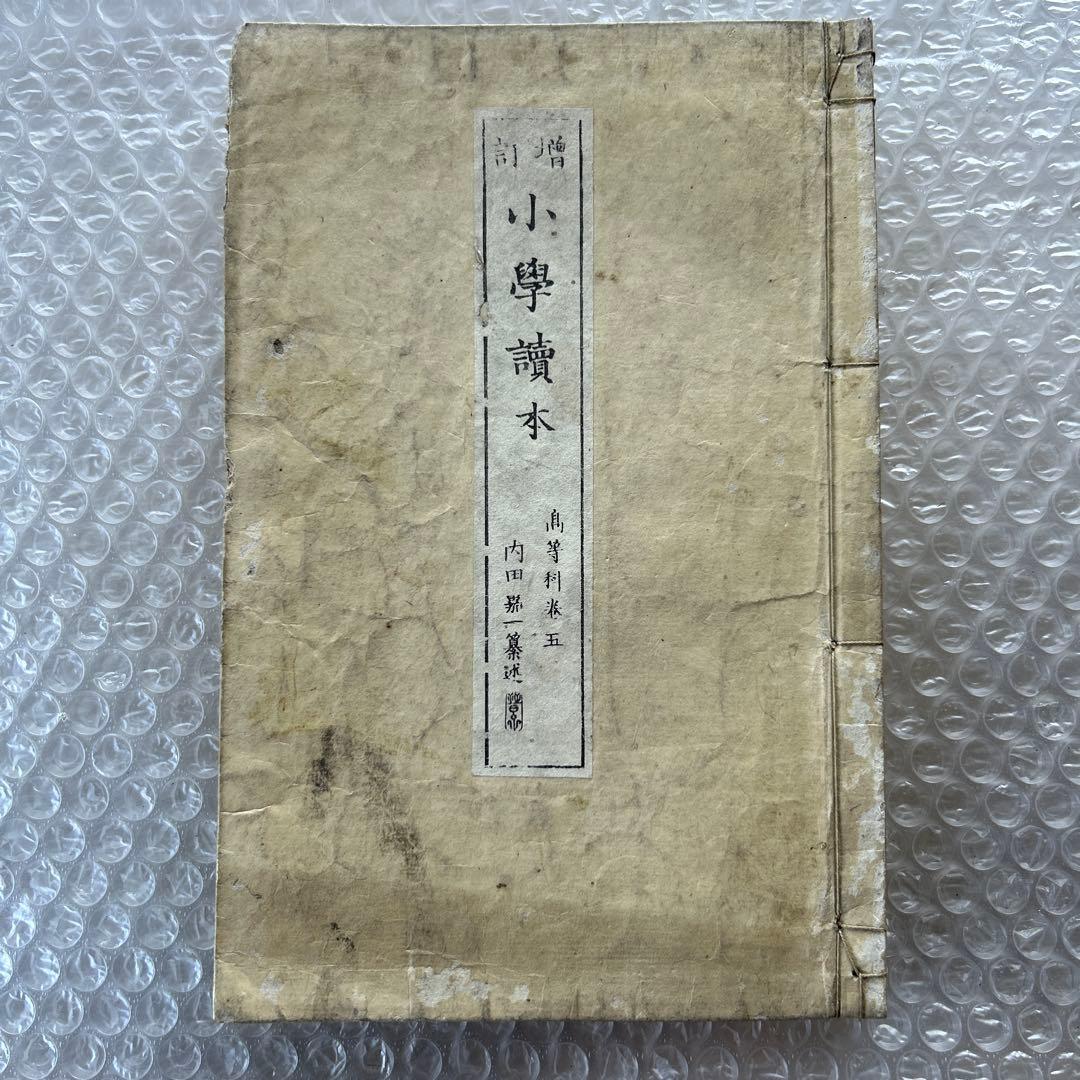 增訂
小學讀本
高等科卷五
内田嘉一纂述